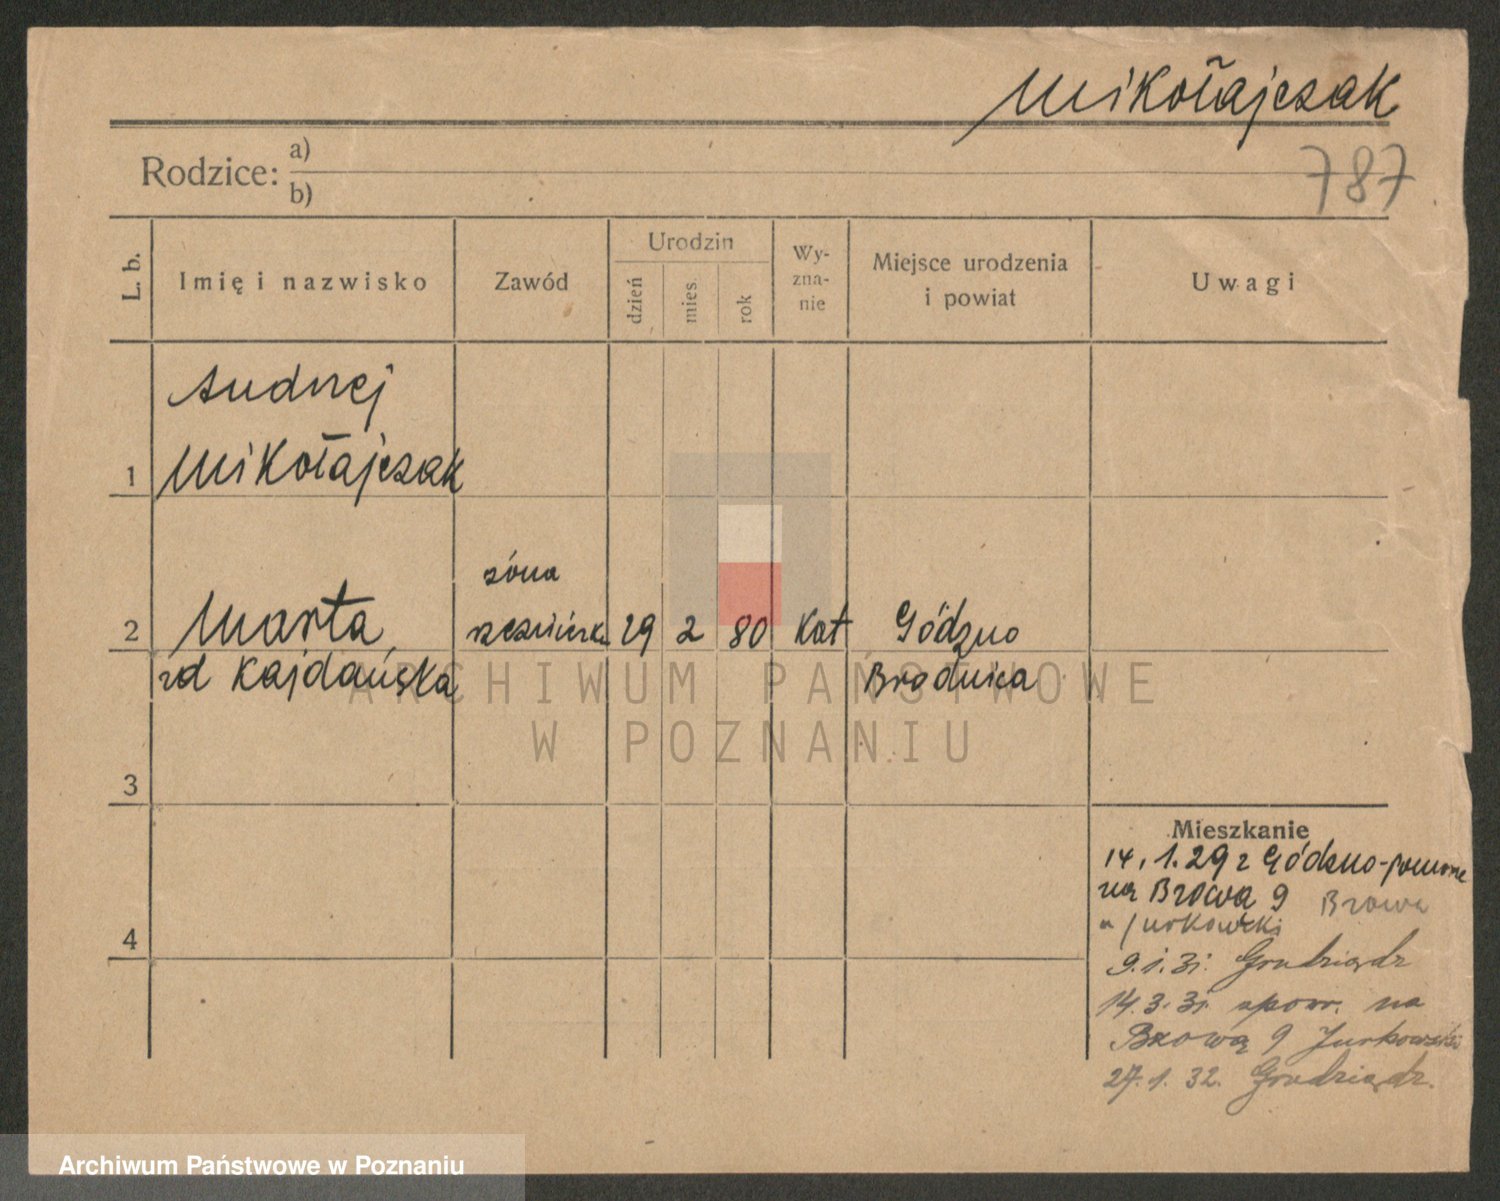 Mikołajczak
787
Rodzice: a)
b)
L. b.
Imię i nazwisko
Zawód
Urodzin
dzień
mies.
rok
Wy-
zna-
nie
Miejsce urodzenia
i powiat
Uwagi
1
Andrzej
Mikołajczak
2
Marta
zd Kajdańska
żona
29
2
80
Kat
Gódzno
Brodnica
3
4
Mieszkanie
14.1.29 z
na Browa 9 Browa
u Jurkowski
9.1.31. Grudziądz
14.3.31. spowr. na
Brową 9 Jurkowski
27.1.32. Grudziądz.
ARCHIWUM PAŃSTWOWE
W POZNANIU
Archiwum Państwowe w Poznaniu